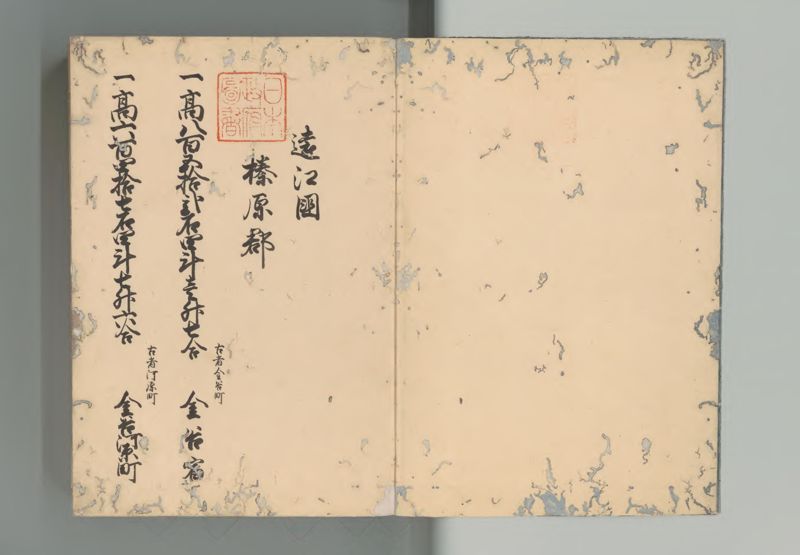 遠江國
榛原郡
日本
政府
圖書
一高八百五拾弐石四斗壱升七合
古者金谷町
金谷宿
一高六百四拾七石四斗七升六合
古者河原町
金谷河原町